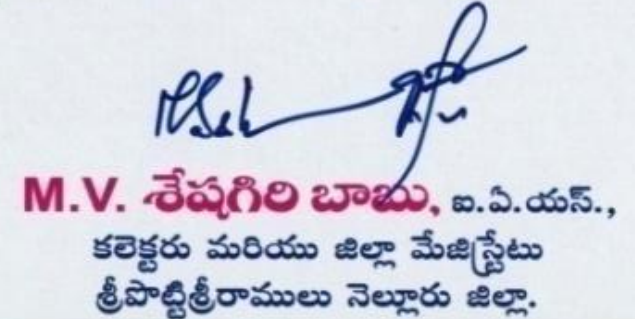 M.V. శేషగిరి బాబు, ఐ.ఏ.యస్.,
కలెక్టరు మరియు జిల్లా మేజిస్ట్రేటు
శ్రీపొట్టిశ్రీరాములు నెల్లూరు జిల్లా.